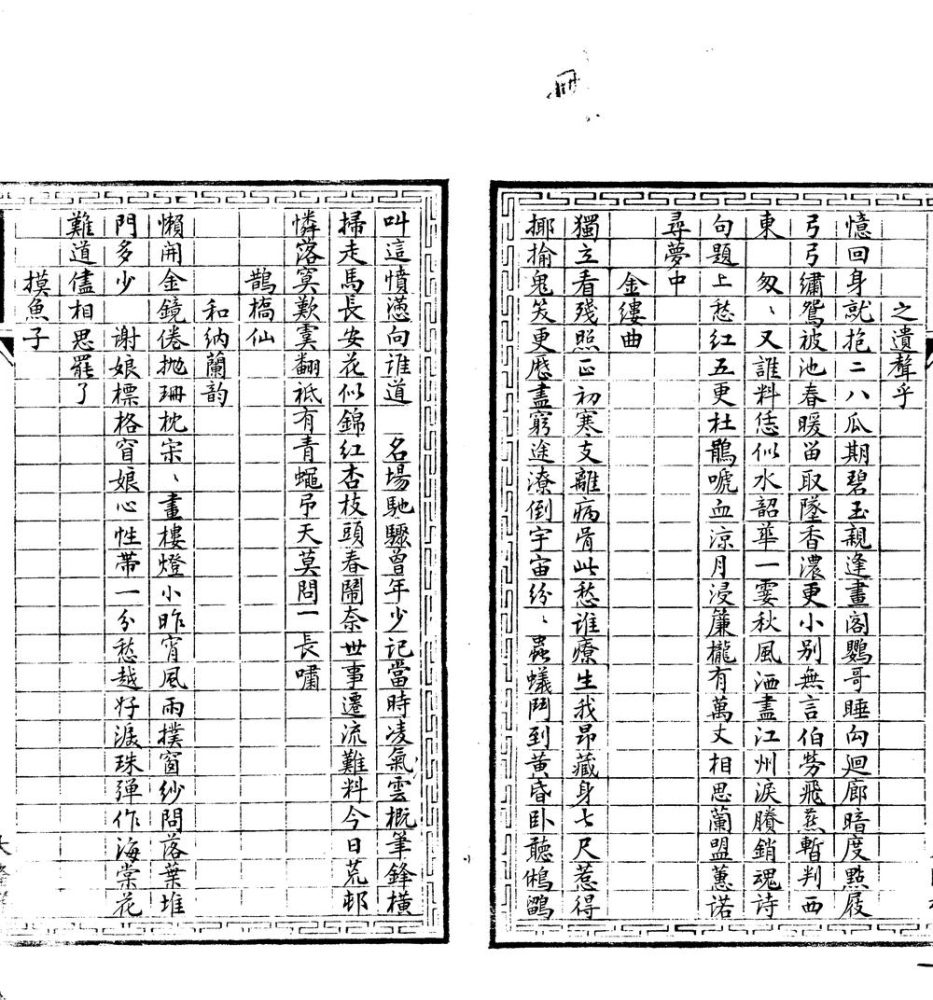 之遺聲乎
憶回身就抱二八瓜期碧玉親逢畫閣鸚哥睡向迴廊暗度點屐
弓弓繡鴛被池春暖留取墜香濃更小别無言伯勞飛燕暫判西
東　匆、又誰料恁似水韶華一霎秋風洒盡江州淚賸銷魂詩
句題上愁紅五更杜鵑唬血涼月浸簾櫳有萬丈相思蘭盟蕙诺
尋夢中
金縷曲
獨立看殘照正初寒支離病骨此愁谁療生我昂藏身七尺惹得
揶揄鬼笑更歷盡窮途潦倒宇宙紛、蟲蟻鬥到黄昏卧聽鵂鶹
叫這憤懣向谁道　名場馳驟曾年少记當時凌氣雲概筆鋒横
掃走馬長安花似錦紅杏枝頭春鬧奈世事遷流難料今日荒邨
憐落寞歎寞翻祗有青蠅弔天莫問一長嘯
鵲橋仙
和纳蘭韵
懶開金鏡倦抛珊枕宗、畫樓燈小昨宵風雨撲窗紗問落葉堆
門多少　謝娘標格窅娘心性帶一分愁越好淚珠彈作海棠花
難道儘相思罷了
摸魚子